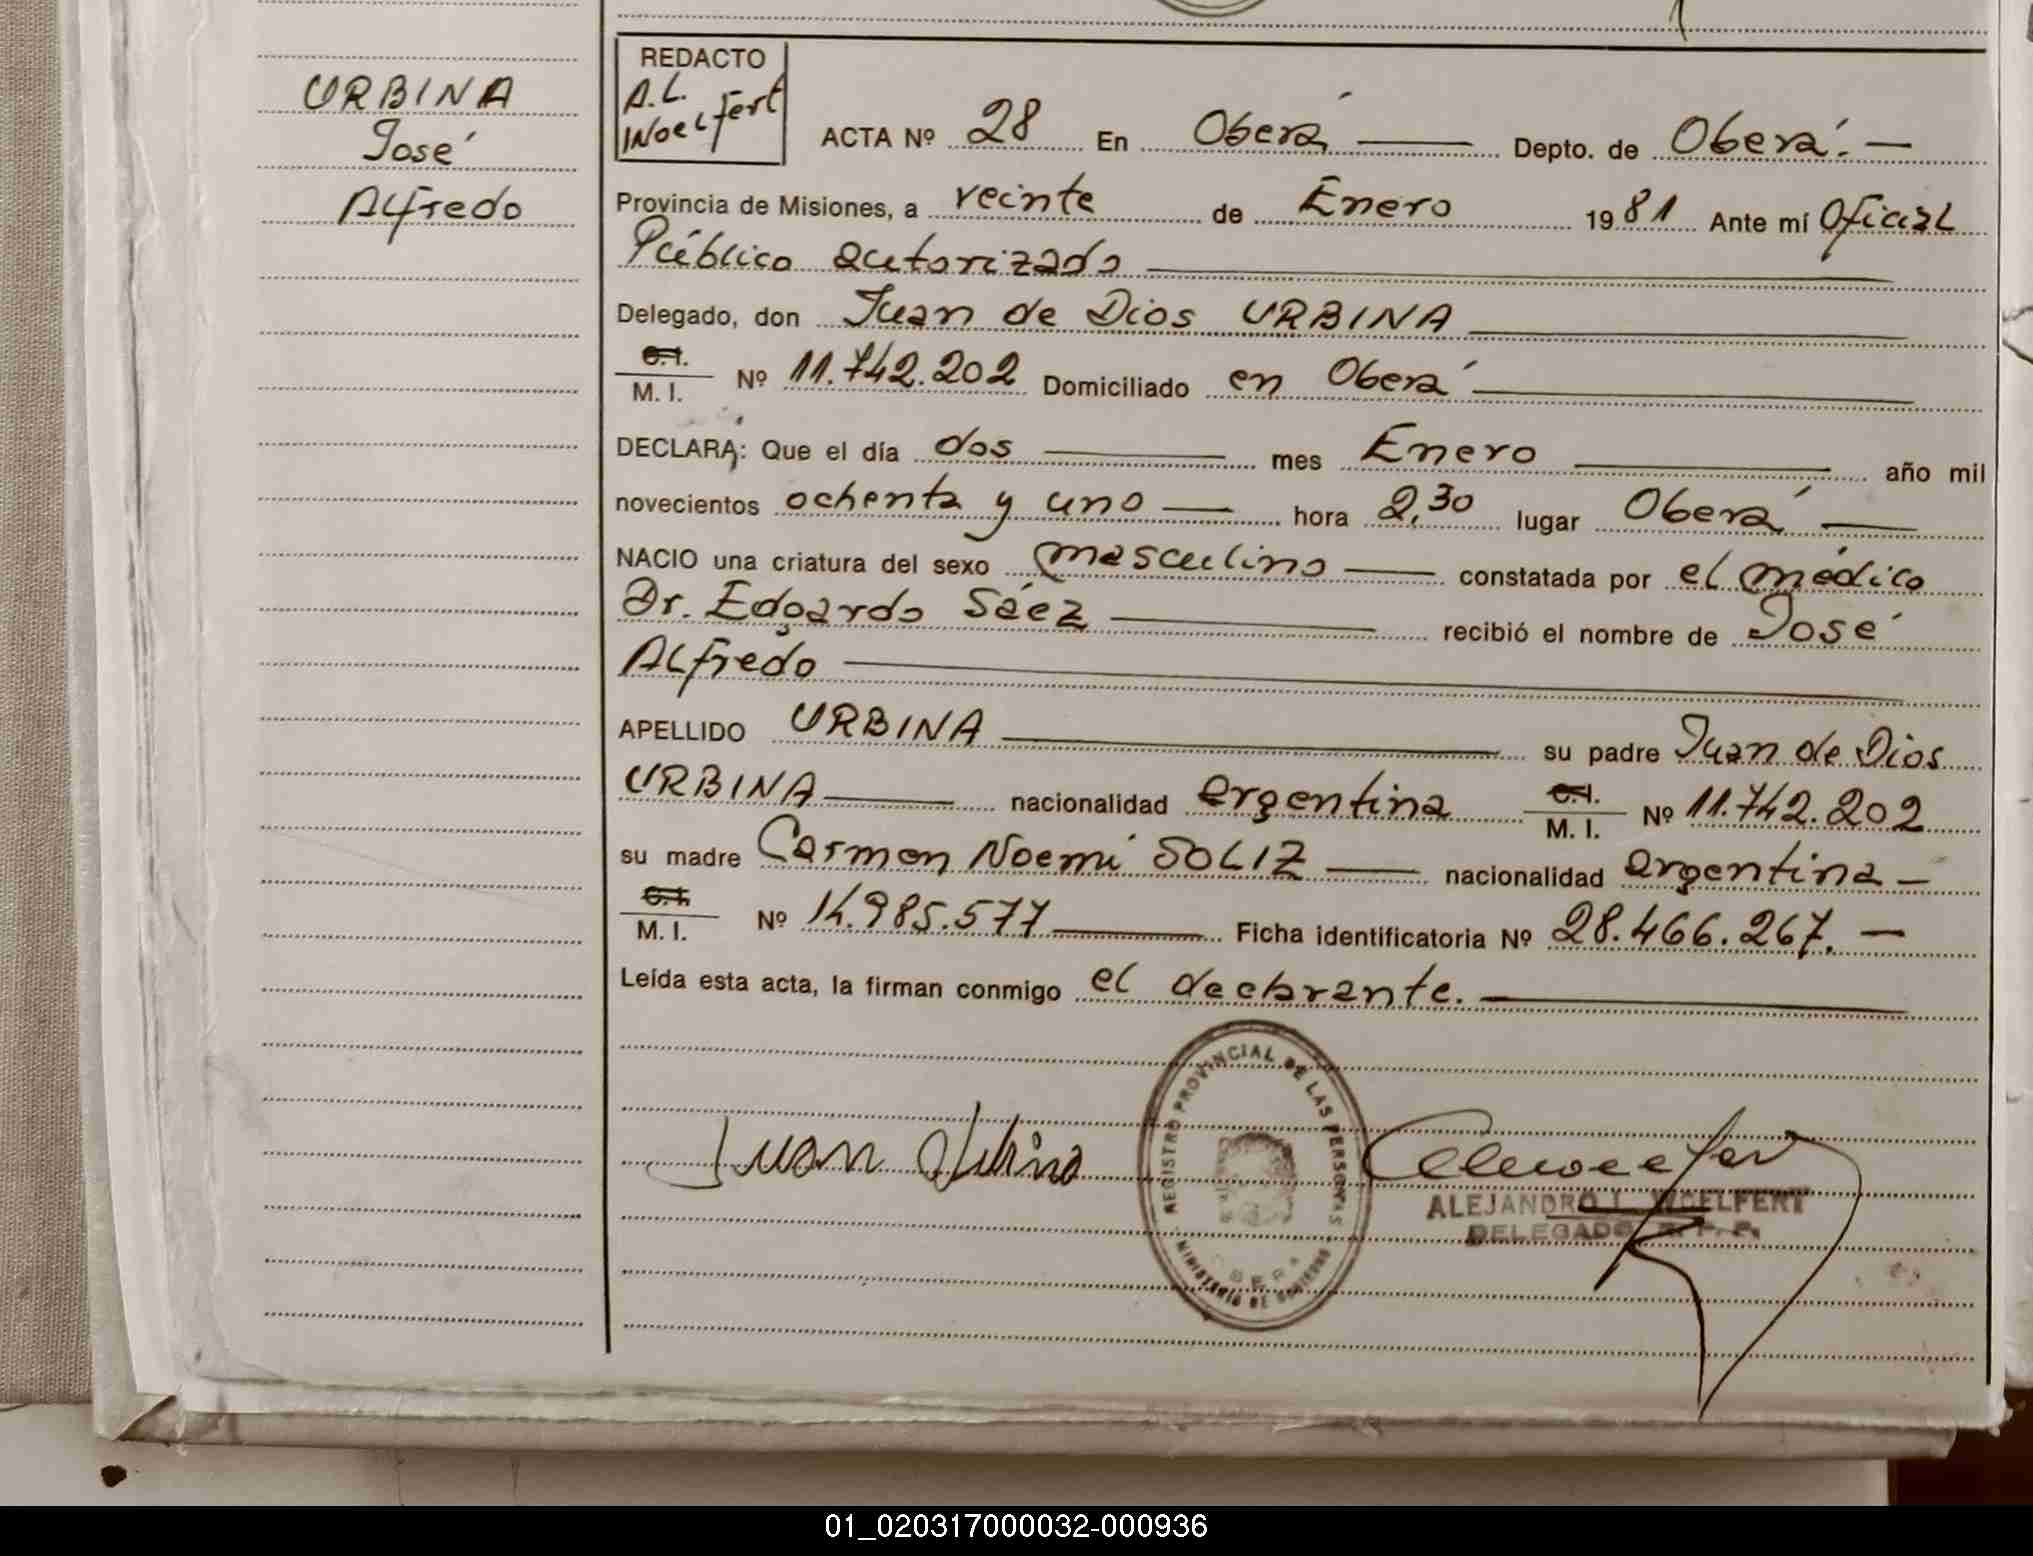 URBINA
José
Alfredo
REDACTO
A.L.
Woelfert
ACTA Nº 28 En Oberá Depto. de Oberá.—
Provincia de Misiones, a veinte de Enero 1981 Ante mí Oficial
Público autorizado
Delegado, don Juan de Dios URBINA
C.I.
M. I. Nº 11.742.202 Domiciliado en Oberá
DECLARA: Que el día dos mes Enero año mil
novecientos ochenta y uno hora 2,30 lugar Oberá
NACIO una criatura del sexo masculino constatada por el médico
Dr. Edgardo Sáez recibió el nombre de José
Alfredo
APELLIDO URBINA su padre Juan de Dios
URBINA nacionalidad argentina C.I.
M. I. Nº 11.742.202
su madre Carmen Noemí SOLIZ nacionalidad argentina —
C.I.
M. I. Nº 14.985.577 Ficha identificatoria Nº 28.466.267.—
Leída esta acta, la firman conmigo el declarante.
Juan Urbina
REGISTRO PROVINCIAL DE LAS PERSONAS
MINISTERIO DE GOBIERNO
OBERA
ALEJANDRO L. WOELFERT
DELEGADO R. P. P.
01_020317000032-000936